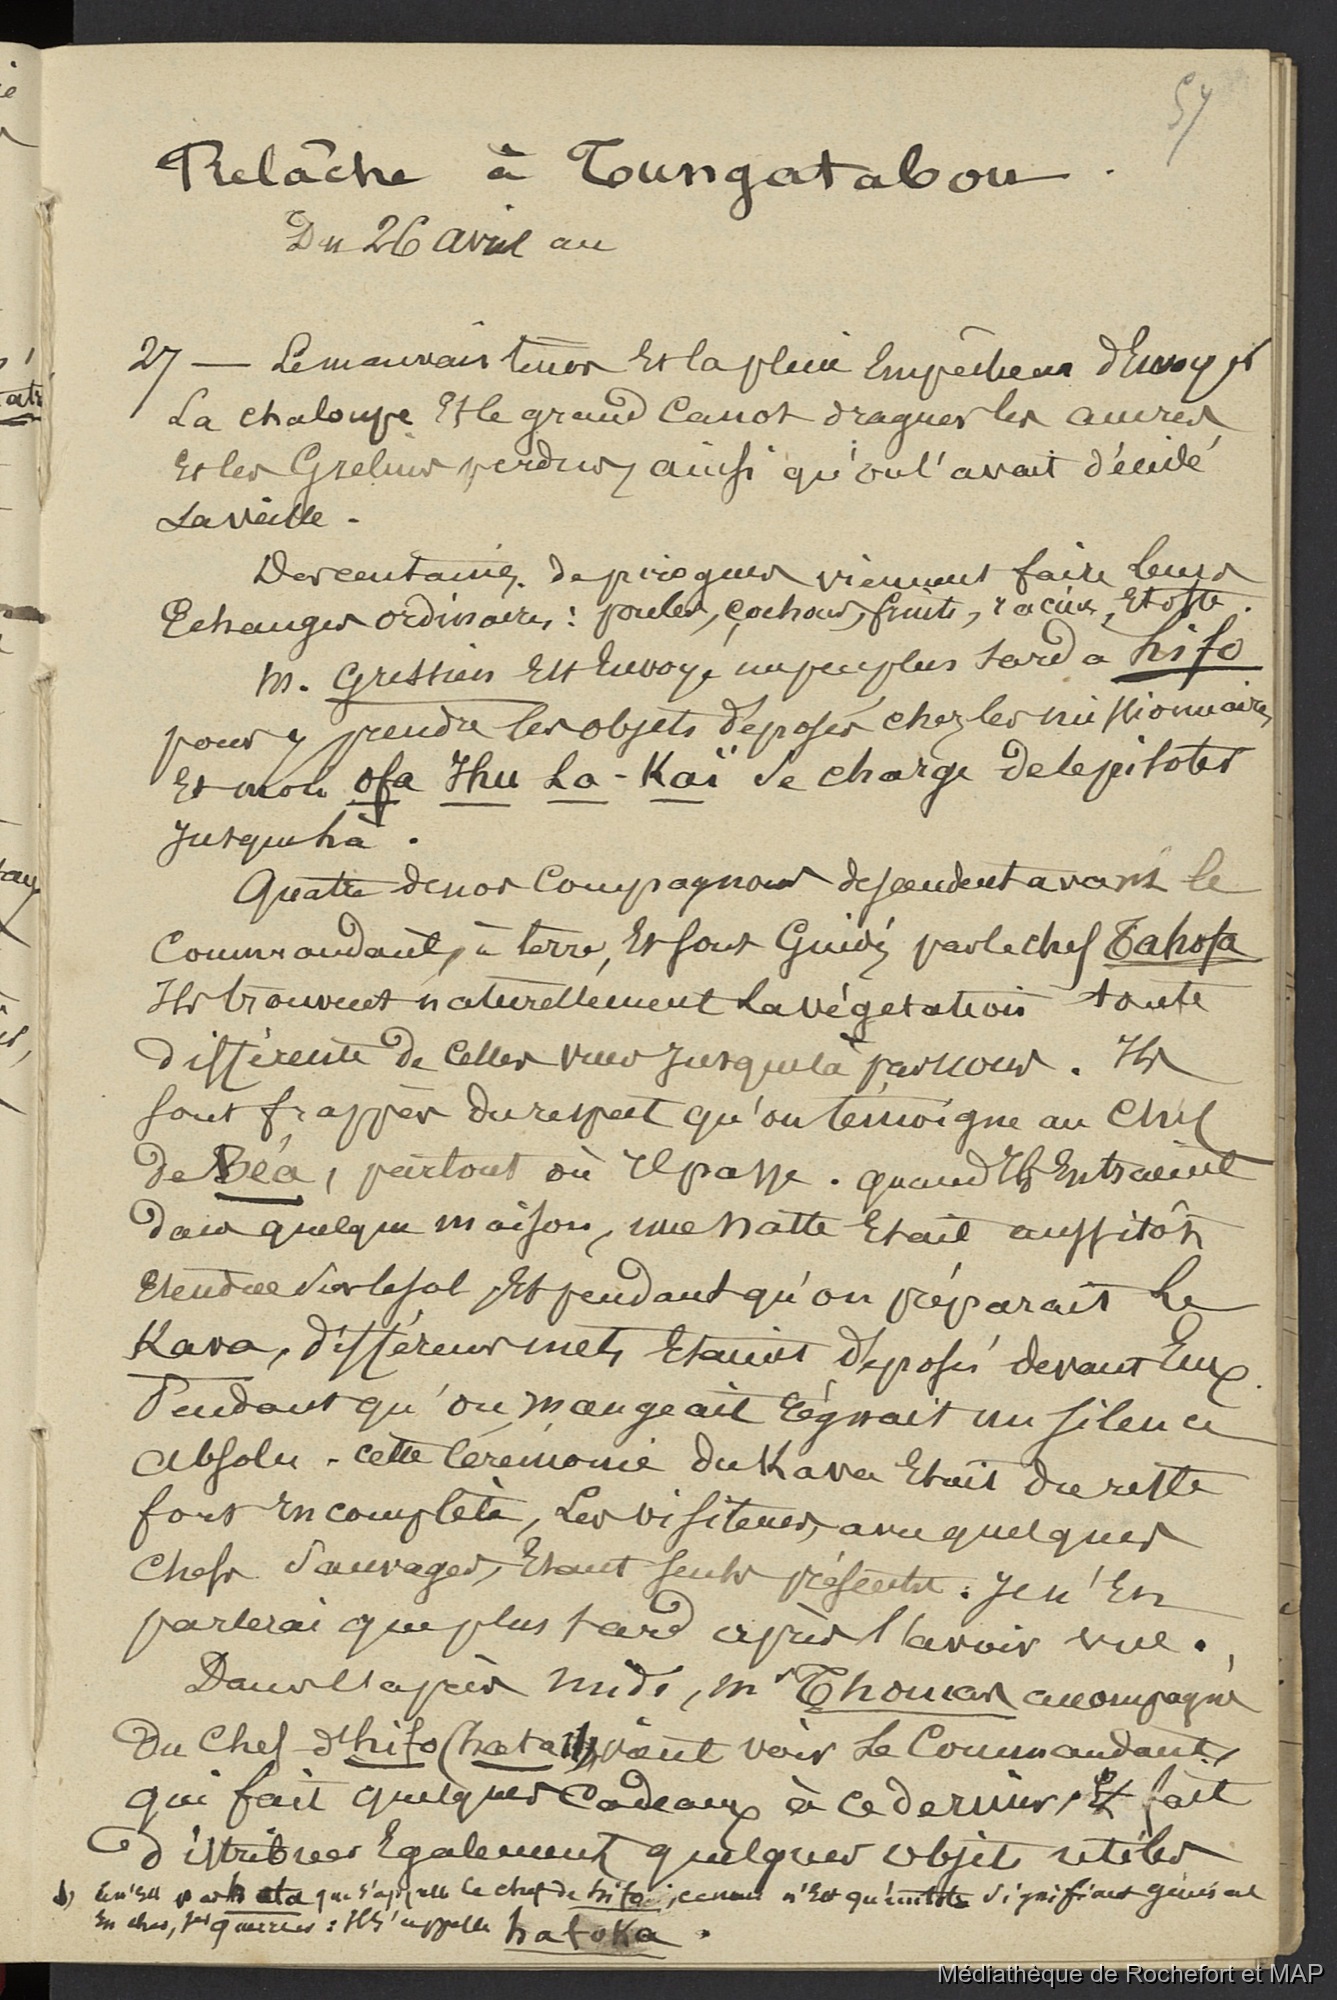 57
Relâche à Tungatabou.
Du 26 avril au
27 — Le mauvais tems et la pluie empêchent d'envoyer
La chaloupe et le grand canot draguer les ancres
et les Grelins perdus, ainsi qu'on l'avait décidé
La veille.
Des centaines de pirogues viennent faire leurs
Echanges ordinaires : poules, cochons, fruits, racines, Etoffe.
M. Gressien est Envoyé un peu plus tard a hifo
pour y prendre les objets déposés chez les missionnaires
Et mon ofa Thu La-Kaï se charge de le piloter
Jusque là.
Quatre de nos Compagnons descendent avant le
Commandant, à terre, Et sont Guidés par le chef Tahofa
Ils trouvent naturellement La végétation toute
différente de Celles vues Jusque là par nous. Ils
sont frappés du respect qu'on témoigne au Chef
de Béa, partout où Il passe. quand Ils Entraient
dans quelque maison, une natte Etait aussitôt
Etendue sur le sol, Et pendant qu'on préparait Le
Kava, différens mets Etaient déposés devant Eux.
Pendant qu'on mangeait régnait un silence
Absolu. cette Cérémonie du Kava Etait du reste
fort Incomplète, Les visiteurs, avec quelques
Chefs Sauvages, Etant seuls présents. Je n'En
parlerai que plus tard après l'avoir vue.
Dans l'après midi, Mr Thomas accompagné
Du Chef d'hifo (hata) vient voir Le Commandant,
qui fait quelques Cadeaux à ce dernier, Et fait
distribuer Egalement quelques objets utiles
Ce n'Est pas hata que s'appelle le chef de hifo; ce nom n'Est qu'un titre signifiant général
En chef, des guerriers : Il s'appelle hatoKa.
Médiathèque de Rochefort et MAP